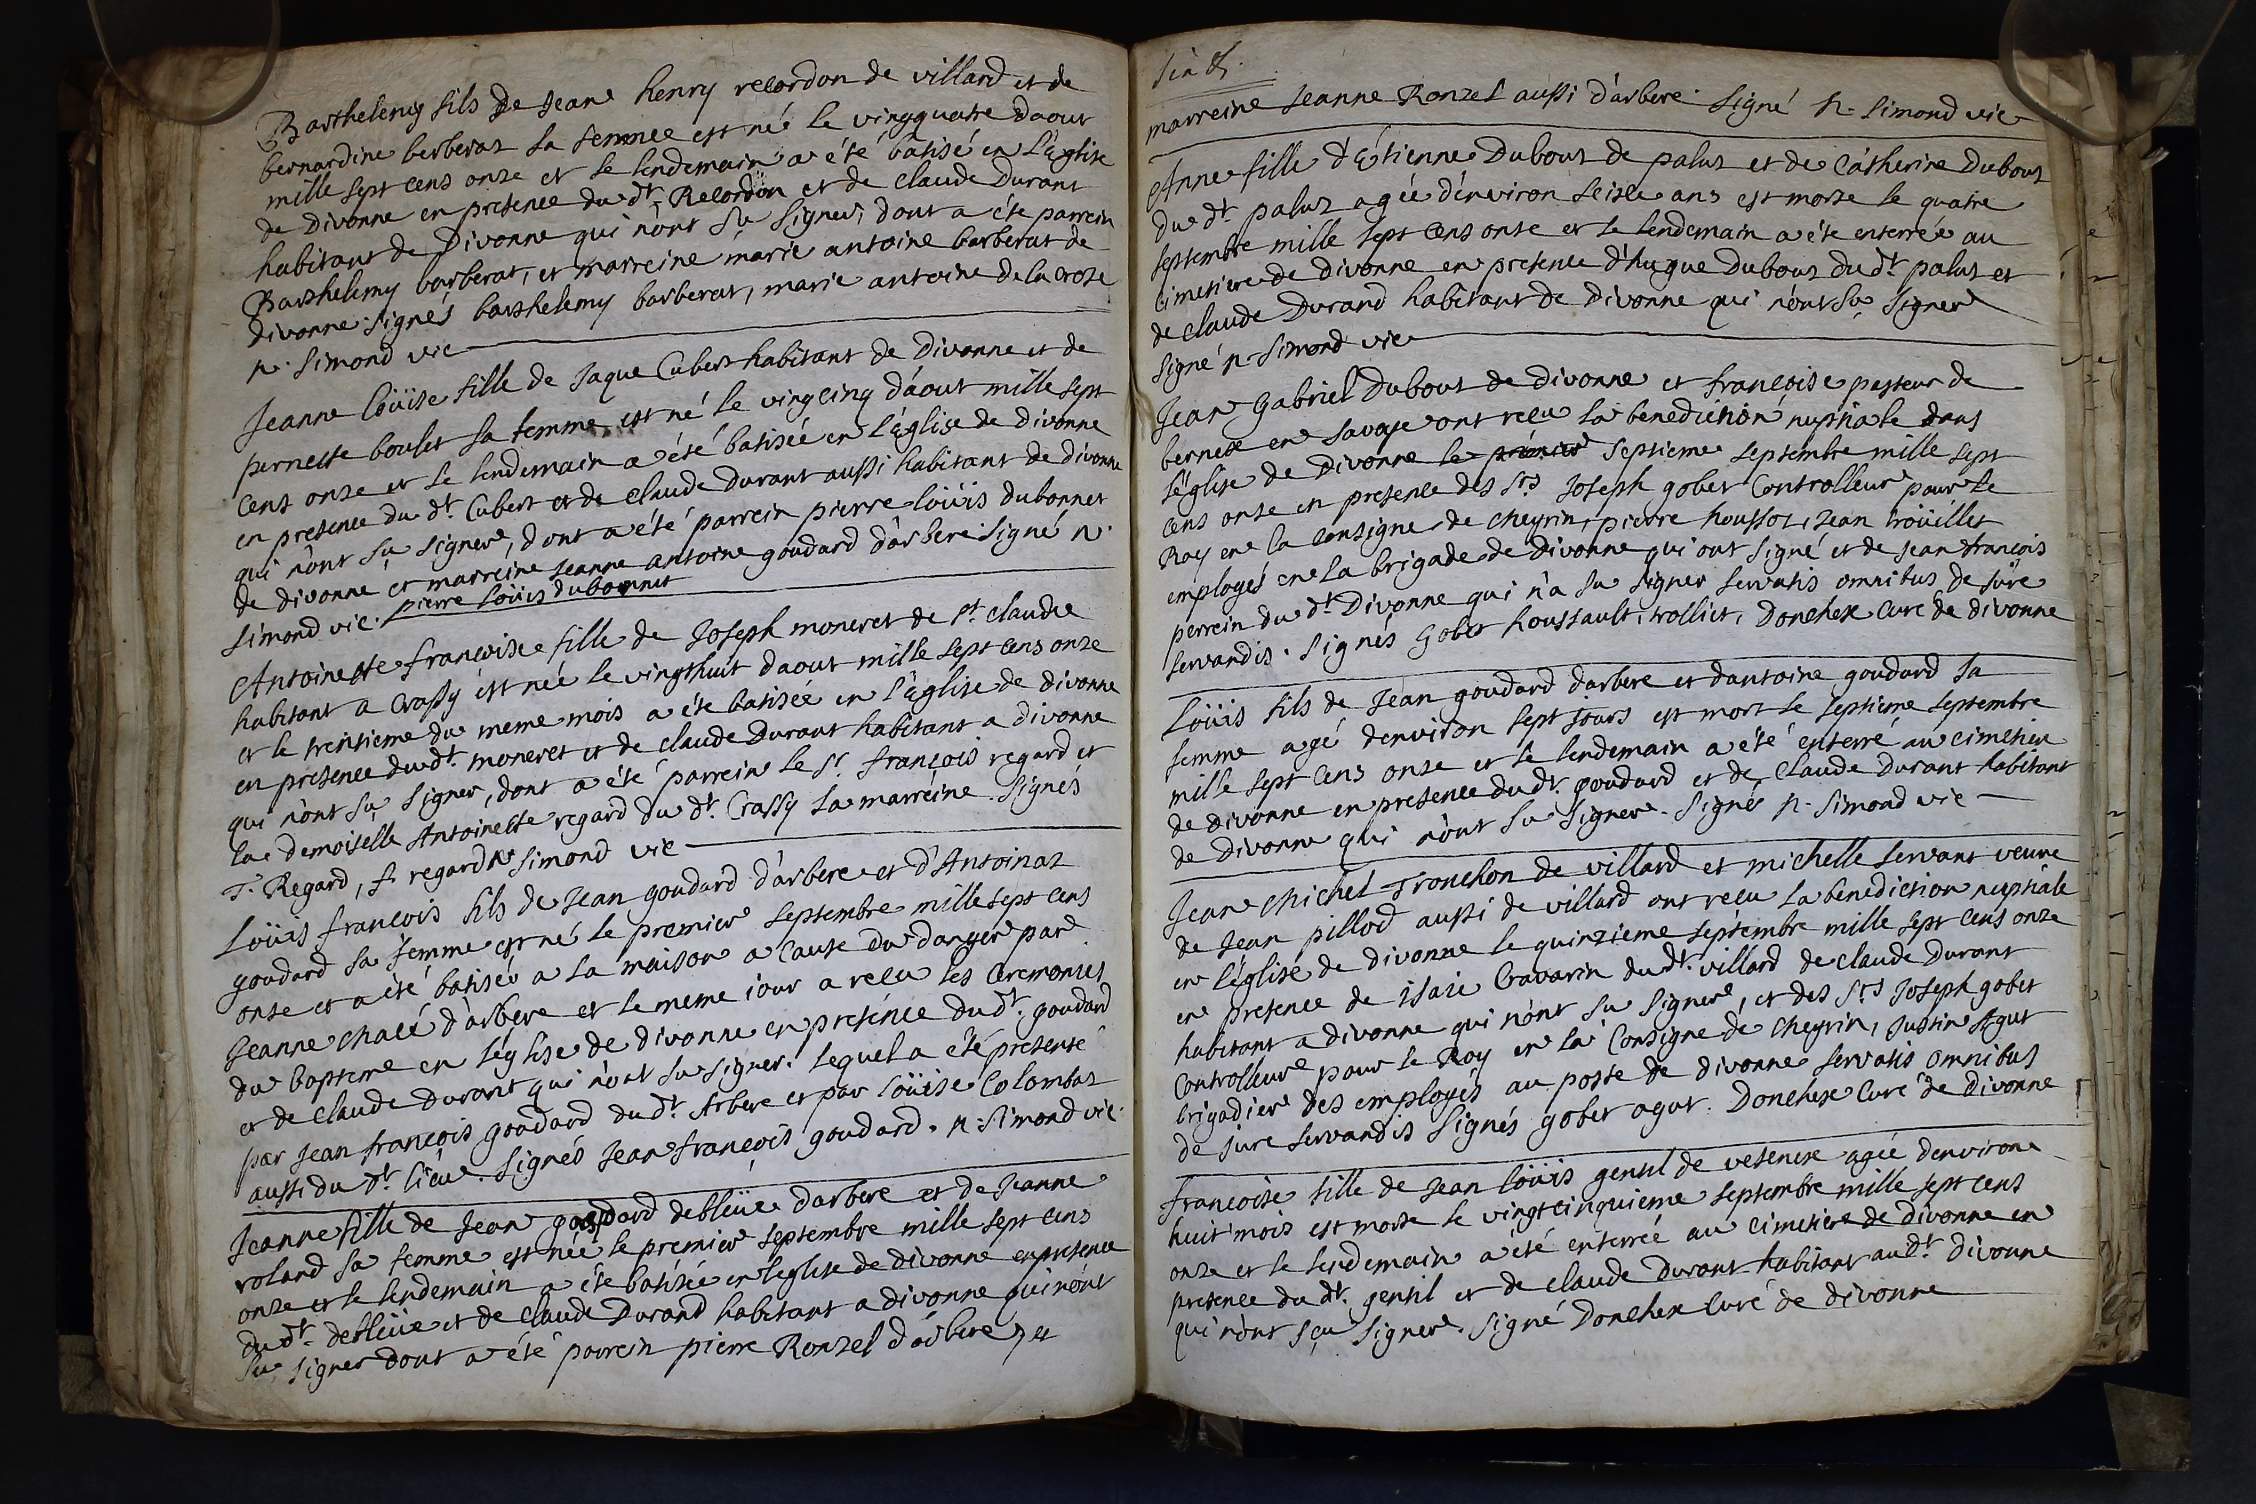 Barthelemy fils de Jean henry recordon de villard et de
bernardine berberat sa femme est né le vingquatre daout
mille sept cens onze et le lendemain a été batisé en l'Eglise
de Divonne en presence du dt. Recordon et de claude Durant
habitant de Divonne qui n'ont su signer, dont a été parrein
Barthelemy barberat, et marreine marie antoine barberat de
divonne. signés barthelemy barberat, marie antoine de la croze
n. simond vic
Jeanne loüise fille de Jaque Cubert habitant de Divonne et de
pernette boulet sa femme est né le vingcinq d'aout mille sept
cens onze et le lendemain a été batisée en l'Eglise de divonne
en presence du dt. Cubert et de claude Durant aussi habitant de divonne
qui n'ont su signer, dont a été parrein pierre loüis dubonnet
de divonne et marreine jeanne antoine goudard d'arbere. signé n.
simond vic. pierre loüis dubonnet
Antoinette françoise fille de Joseph moneret de st. claude
habitant a Crassy est née le vingthuit daout mille sept cens onze
et le trentieme du meme mois a été batisée en l'Eglise de divonne
en presence dudt. moneret et de claude Durant habitant a divonne
qui n'ont su signer, dont a été parrein le sr. françois regard et
la demoiselle Antoinette regard du dt. Crassy la marreine. signés
T. Regard, f. regard n. simond vic
Loüis françois fils de Jean goudard d'arbere et d'Antoinaz
goudard sa femme est né le premier septembre mille sept cens
onze et a été batisé a la maison a cause du danger par
Jeanne chalé d'arbere et le meme jour a receu les ceremonies
du bapteme en l'église de divonne en presence du dt. goudard
et de claude Durant qui n'ont su signer. lequel a été presenté
par Jean françois goudard du dt. Arbere et par loüise Colombaz
aussi du dt. lieu. signés Jean françois goudard. n. simond vic.
Jeanne fille de Jean goudard debleüe darbere et de Jeanne
roland sa femme est née le premier septembre mille sept cens
onze et le lendemain a été batisée en l'eglise de divonne en presence
du dt. debleüe et de claude Durand habitant a divonne qui n'ont
su signer dont a été parrein pierre Ronzel d'arbere, et
marreine Jeanne Ronzel aussi d'arbere. signé n. simond vic
Anne fille d'Etienne Dubout de palut et de Catherine Dubout
du dt. palut agée d'environ seize ans est morte le quatre
septembre mille sept cens onze et le lendemain a été enterrée au
cimetiere de divonne en presence d'hugue Dubout du dt. palut et
de claude Durand habitant de divonne qui n'ont su signer
signé n. simond vic
Jean Gabriel Dubout de divonne et françoise pasteur de
bernex en savoye ont receu la benediction nuptiale dans
l'église de Divonne le premier septieme septembre mille sept
cens onze en presence des srs Joseph gobet Controlleur pour le
Roy en la Consigne de cheyrin, pierre houssot, Jean troüillet
employés en la brigade de divonne qui ont signé et de jean françois
perrein du dt. Divonne qui n'a su signer servatis omnibus de jure
servandis. Signés Gobet houssault, trolliet, Donchex Curé de divonne
Loüis fils de Jean goudard darbere et dantoine goudard sa
femme agé denviron sept jours est mort le septieme septembre
mille sept cens onze et le lendemain a été enterré au cimetiere
de divonne en presence dudt. goudard et de Claude Durant habitant
de divonne qui n'ont su signer. signé n. simond vic
Jean Michel Tronchon de villard et michelle servant veuve
de Jean pillod aussi de villard ont receu la benediction nuptiale
en l'église de divonne le quinzieme séptembre mille sept cens onze
en presence de isaie Cravarin du dt. villard de claude Durant
habitant a divonne qui n'ont su signer, et des srs Joseph gobet
Controlleur pour le Roy en la Consigne de cheyrin, Justin Agut
brigadier des employés au poste de divonne servatis omnibus
de jure servandis Signés gobet agut. Donchex Curé de divonne
françoise fille de Jean loüis gentil de vesenex agée denviron
huit mois est morte le vingtcinquieme septembre mille sept cens
onze et le lendemain a été enterrée au cimetiere de divonne en
presence du dt. gentil et de claude Durant habitant audt. divonne
qui n'ont sçu signer. signé Donchex Curé de divonne